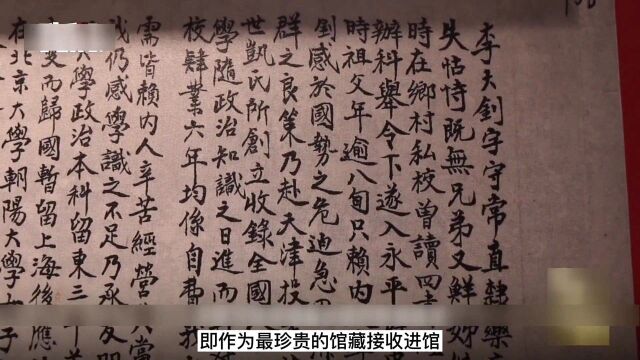 李大釗字守常直隸樂
失怙恃既無兄弟又鮮姊
時在鄉村私校曾讀四書
辦科舉令下遂入永平
時祖父年逾八旬只賴內
釗感於國勢之危迫急
群之良策乃赴天津投
世凱氏所創立收錄全國
學隨政治知識之日進而
校肄業六年均係自費我
需皆賴内人辛苦經營
我仍感學識之不足乃承
大學政治本科留東三
而歸國暫留上海後應
在北京大學朝陽大學
即作为最珍贵的馆藏接收进馆